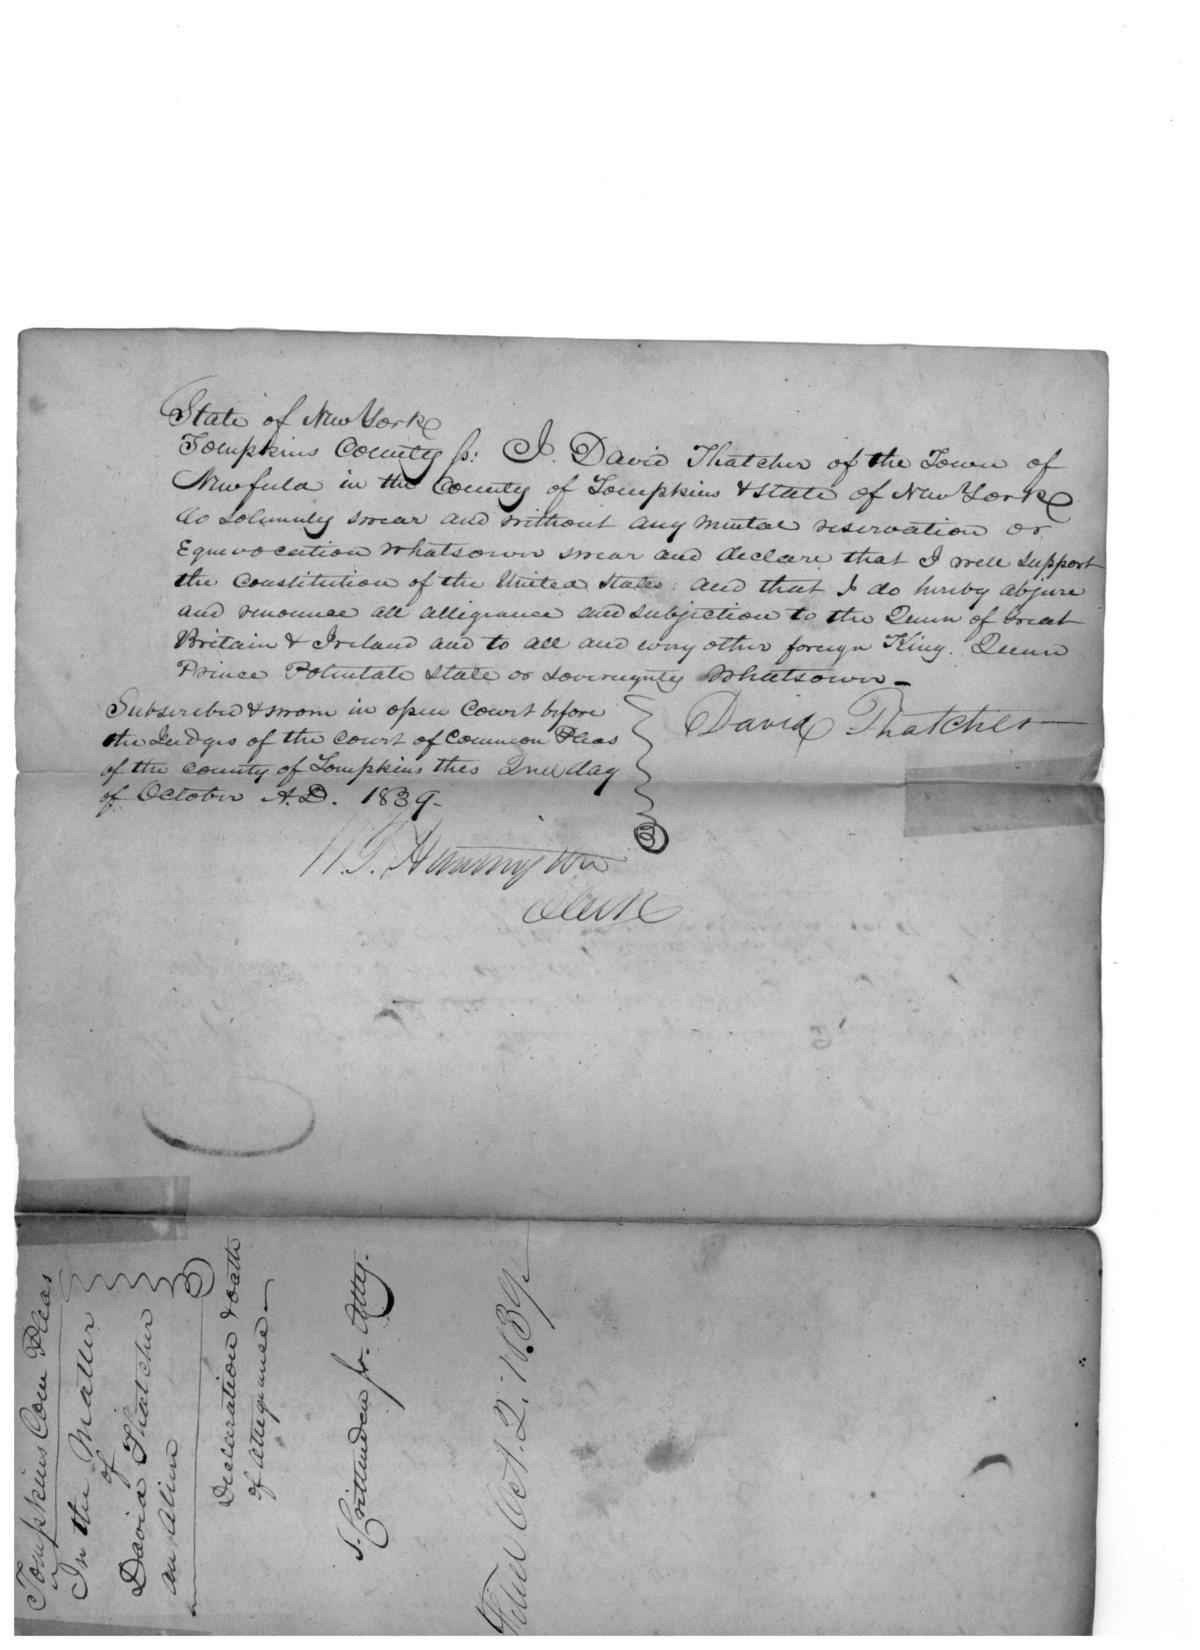 State of New York
Tompkins County ss: I. David Thatcher of the Town of
Newfield in the County of Tompkins & State of New York
do solemnly swear and without any mental reservation or
Equivocation whatsoever swear and declare that I will support
the Constitution of the United States: and that I do hereby abjure
and renounce all allegiance and subjection to the Queen of Great
Britain & Ireland and to all and every other foreign King. Queen
Prince Potentate State or Sovereignty Whatsoever —
Subscribed & sworn in open Court before
the Judges of the Court of Common Pleas
of the County of Tompkins this 2nd day
of October A.D. 1839-
David Thatcher
Clerk
Tompkins Com Pleas
In the Matter
of
David Thatcher
an Alien
Declaration & oath
of allegiance —
S. Crittenden Jr. Atty.
Filed Oct. 2. 1839